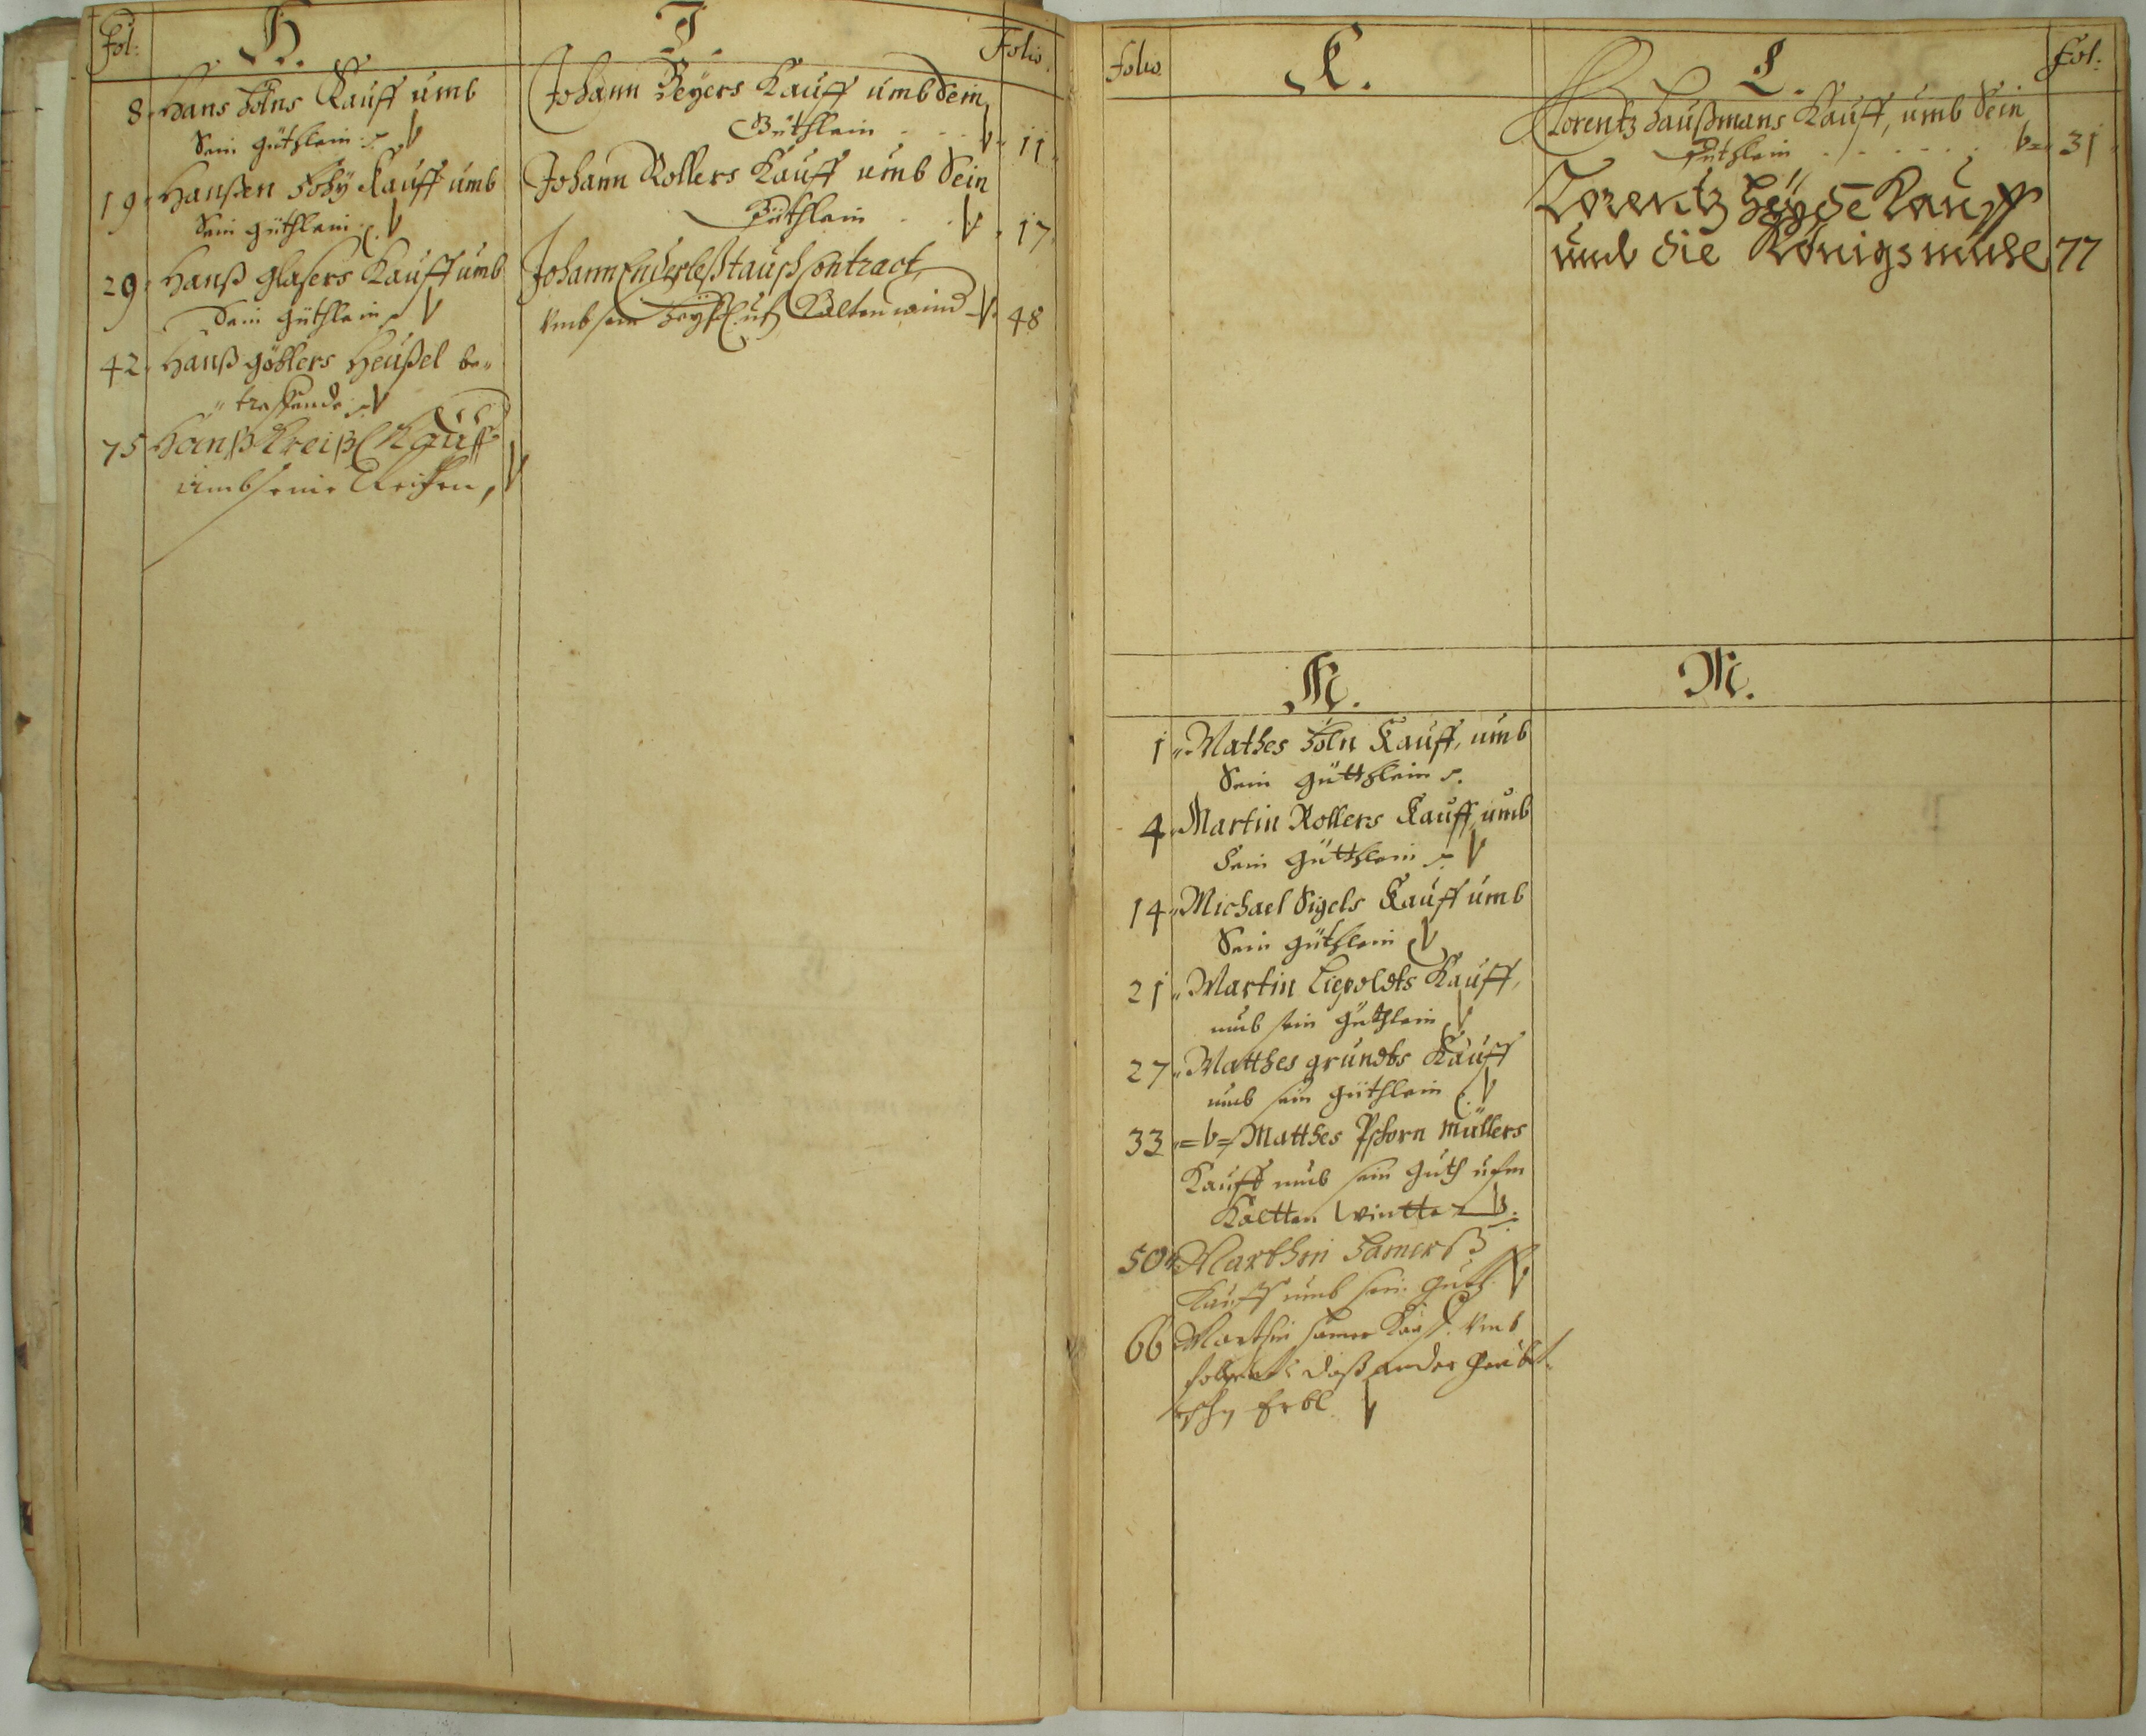 Fol:
H.
8. Hans Föhns Kauff umb
Sein güthlein
19. Hanßen Kauff umb
Sein güthlein
29. Hanß Glasers Kauff umb
Sein güthlein
42. Hanß göhlers Heußel be-
treffende
75 Hanß Kreißl Kauff
umb seine
J
Folio
Johann Beÿers Kauff umb Sein
Güthlein 11
Johann Rollers Kauff umb Sein
Güthlein 17
Johann Enderleß tausch Contract,
Vmb sein Kaltenwind 48
Folio
K.
L.
Fol:
Lorentz Haußmans Kauff, umb Sein
Güthlein 31
Lorentz Heÿde Kauff
umb die Königsmuhl 77
M.
M.
1 Mathes Kauff, umb
Sein Gütthlein
4 Martin Rollers Kauff, umb
Sein Gütthlein
14 Michael Sigels Kauff umb
Sein güthlein
21 Martin Liepoldts Kauff,
umb sein güthlein
27 Matthes grundts Kauff
umb sein güthlein
33 Matthes Pschorn Müllers
Kauff umb sein Guth ufm
Kaltten Wintte
50 Marthin Hamerß
Kauff umb sein Guth
66 Marthin Hamer Kauff Vmb
daß ander
Erbl